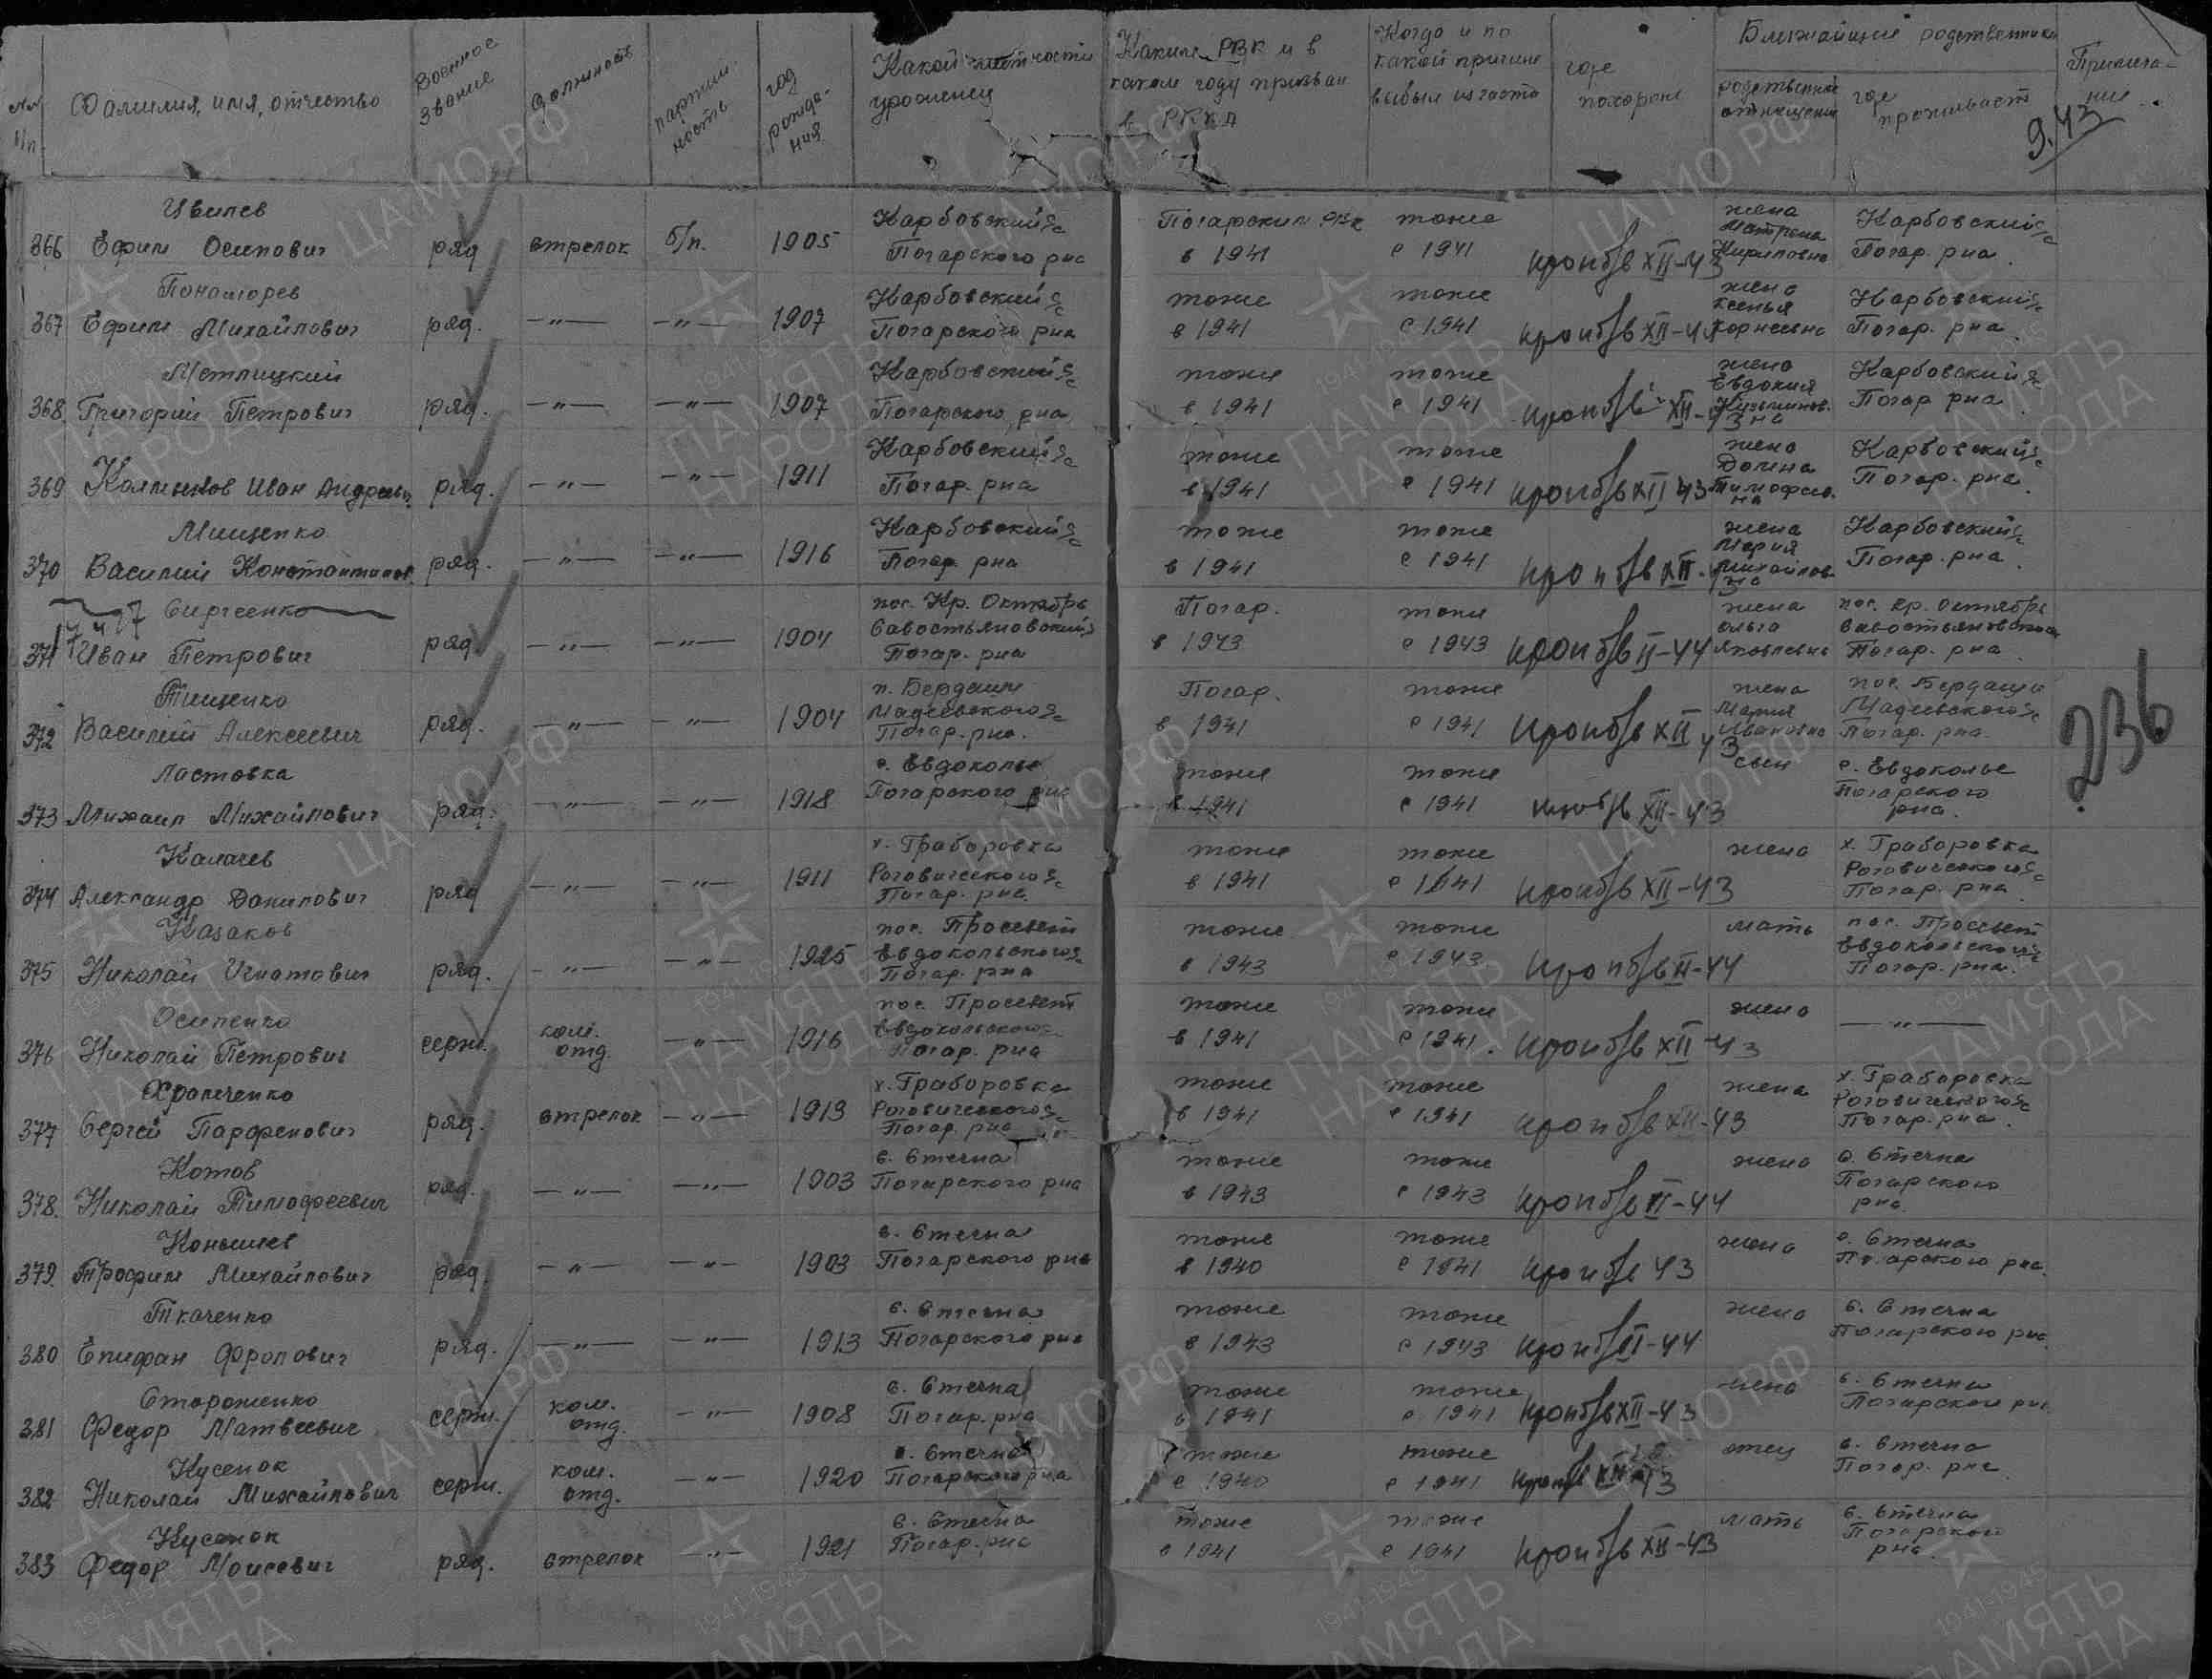 №№ п/п
Фамилия, имя, отчество
Военное звание
Должность
партийность
год рождения
Какой местности уроженец
Каким РВК и в каком году призван в РККА
Когда и по какой причине выбыл из части
где похорон
Ближайшие родственники
родственные отношения
где проживает
Примечание
9.43
Цвилев
366 Ефим Осипович ряд стрелок б/п. 1905 Карбовский с/с Погарского рна Погарским РВК в 1941 тоже с 1941 проп б/в XII-43 жена Матрена Кириловна Карбовский с/с Погар. рна
Пономорев
367 Ефим Михайлович ряд. —"— —"— 1907 Карбовский с/с Погарского рна тоже в 1941 тоже с 1941 проп б/в XII-43 жена Ксенья Корнеевна Карбовский с/с Погар. рна
Метлицкий
368. Григорий Петрович ряд. —"— —"— 1907 Карбовский с/с Погарского рна тоже в 1941 тоже с 1941 проп б/в XII-43 жена Евдокия Кузьминовна Карбовский с/с Погар рна
369 Иван Андреевич ряд. —"— —"— 1911 Карбовский с/с Погар. рна тоже в 1941 тоже с 1941 проп б/в XII 43 жена Тимофеевна Карбовский с/с Погар. рна
Мищенко
370 Василий Константинов ряд. —"— —"— 1916 Карбовский с/с Погар. рна тоже в 1941 тоже с 1941 проп б/в XII-43 жена Мария Михайловна Карбовский с/с Погар. рна
Сиргеенко
371 Иван Петрович ряд —"— —"— 1904 пос. Кр. Октябрь Савостьяновский Погар. рна Погар. в 1943 тоже с 1943 проп б/в II-44 жена Ольга Яковлевна пос. Кр. Октябрь Савостьяновский Погар. рна
Тищенко
372 Василий Алексеевич ряд. —"— —"— 1904 п. Бердащи Мадеевского с/с Погар. рна. Погар. в 1941 тоже с 1941 проп б/в XII 43 жена Мария Ивановна пос. Бердащи Мадеевского с/с Погар. рна
236
Ластовка
373 Михаил Михайлович ряд. —"— —"— 1918 с. Евдоколье Погарского рна тоже в 1941 тоже с 1941 проп б/в XII-43 сын с. Евдоколье Погарского рна.
Калачев
374 Александр Данилович ряд —"— —"— 1911 х. Граборовка Роговичского с/с Погар. рна. тоже в 1941 тоже с 1941 проп б/в XII-43 жена х. Граборовка Роговичского с/с Погар. рна
Казаков
375 Николай Игнатович ряд. —"— —"— 1925 пос. Просвет Евдокольского с/с Погар. рна тоже в 1943 тоже с 1943 проп б/в II-44 мать пос. Просвет Евдокольского с/с Погар. рна.
Осипенко
376 Николай Петрович серж. ком. отд. —"— 1916 пос. Просвет Евдокольского с/с Погар. рна тоже в 1941 тоже с 1941. проп б/в XII-43 жена —"—
Храпченко
377 Сергей Парфенович ряд. стрелок —"— 1913 х. Граборовка Роговичского с/с Погар. рна тоже в 1941 тоже с 1941 проп б/в XII-43 жена х. Граборовка Роговичского с/с Погар. рна.
Котов
378. Николай Тимофеевич ряд. —"— —"— 1903 с. Стечна Погарского рна тоже в 1943 тоже с 1943 проп б/в II-44 жена с. Стечна Погарского рна.
Конышев
379. Трофим Михайлович ряд. —"— —"— 1903 с. Стечна Погарского рна тоже в 1940 тоже с 1941 проп б/в 43 жена с. Стечна Погарского рна.
Ткаченко
380 Епифан Фролович ряд. —"— —"— 1913 с. Стечна Погарского рна тоже в 1943 тоже с 1943 проп б/в II-44 жена с. Стечна Погарского рна
Стороженко
381 Федор Матвеевич серж. ком. отд. —"— 1908 с. Стечна Погар. рна тоже в 1941 тоже с 1941 проп б/в XII-43 жена с. Стечна Погарского рна
Кусенок
382 Николай Михайлович серж. ком. отд. —"— 1920 с. Стечна Погарского рна тоже с 1940 тоже с 1941 проп б/в XII-43 отец с. Стечна Погар. рна
Кусенок
383 Федор Моисевич ряд. стрелок —"— 1921 с. Стечна Погар. рна тоже с 1941 тоже с 1941 проп б/в XII-43 мать с. Стечна Погарского рна.
ЦА МО РФ
ПАМЯТЬ НАРОДА
1941-1945